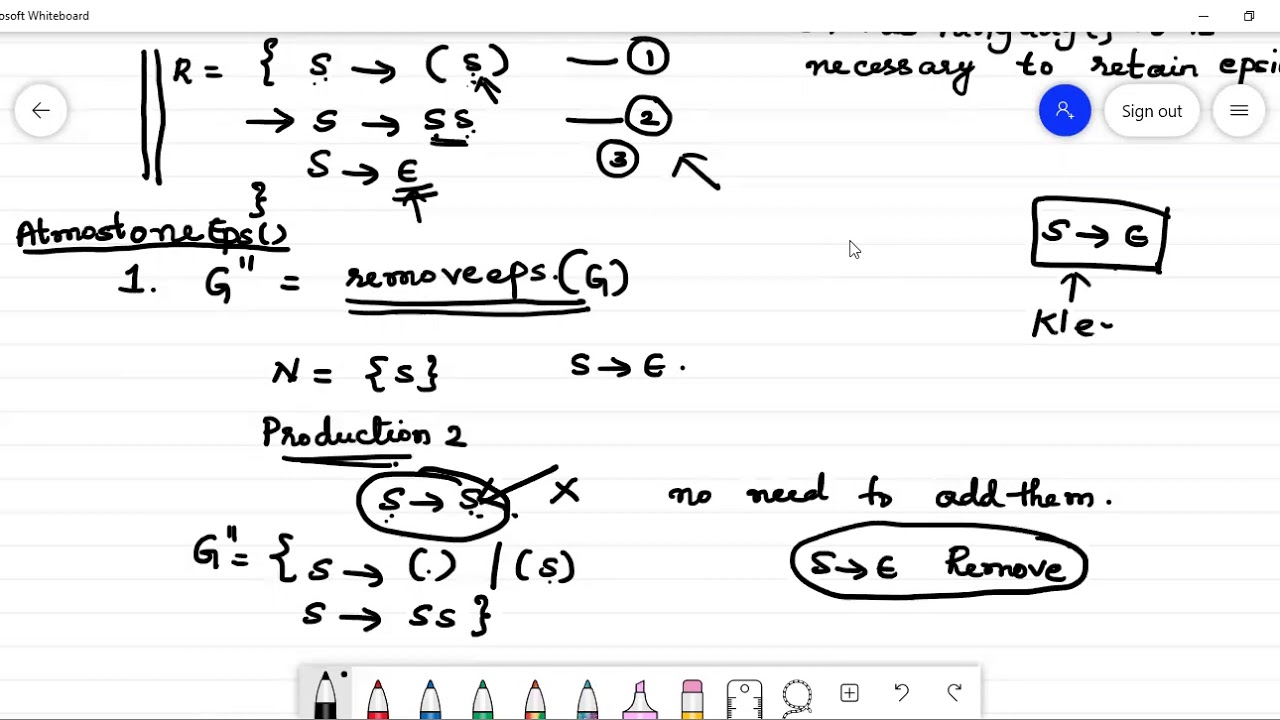 osoft Whiteboard
R = { S → (S) — 1
necessary to retain epsi
Sign out
→ S → SS — 2
S → ϵ 3
}
S → ϵ
Kle
AtmostoneEps()
1. G" = removeeps.(G)
N = {S} S → ϵ .
Production 2
S → S X no need to add them.
G" = { S → () | (S)
S → ϵ Remove
S → SS }